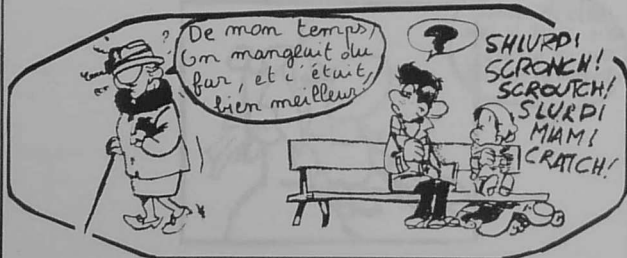 ?
De mon temps,
On mangeait du
far, et c'était,
bien meilleur!
?
SHIURP!
SCRONCH!
SCROUTCH!
SLURP!
MIAM!
CRATCH!